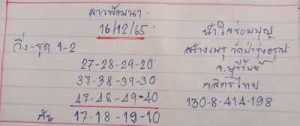 ลาวพัฒนา
16/12/65
วิ่ง-รูด 1-2
27-28-29-20
37-38-39-30
47-48-49-40
17-18-19-10
นำใส่ซองบุญ
สร้างเมรุ วัดป่ารุ่งอรุณ
จ.บุรีรัมย์
กสิกรไทย
130-8-414-198